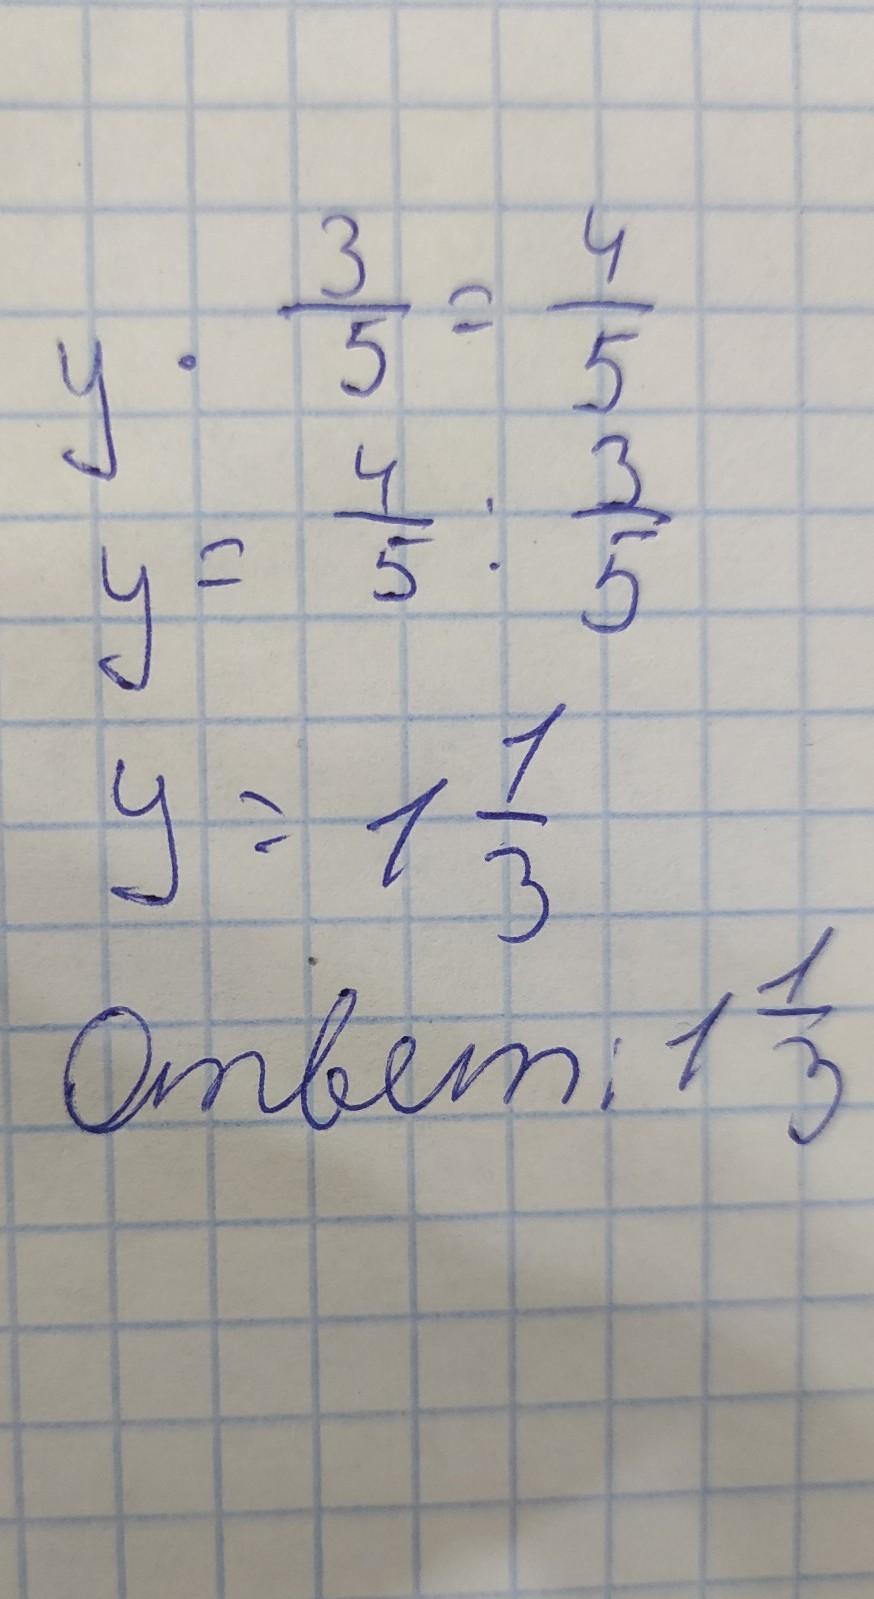 y · 3/5 = 4/5
y = 4/5 : 3/5
y = 1 1/3
Ответ: 1 1/3